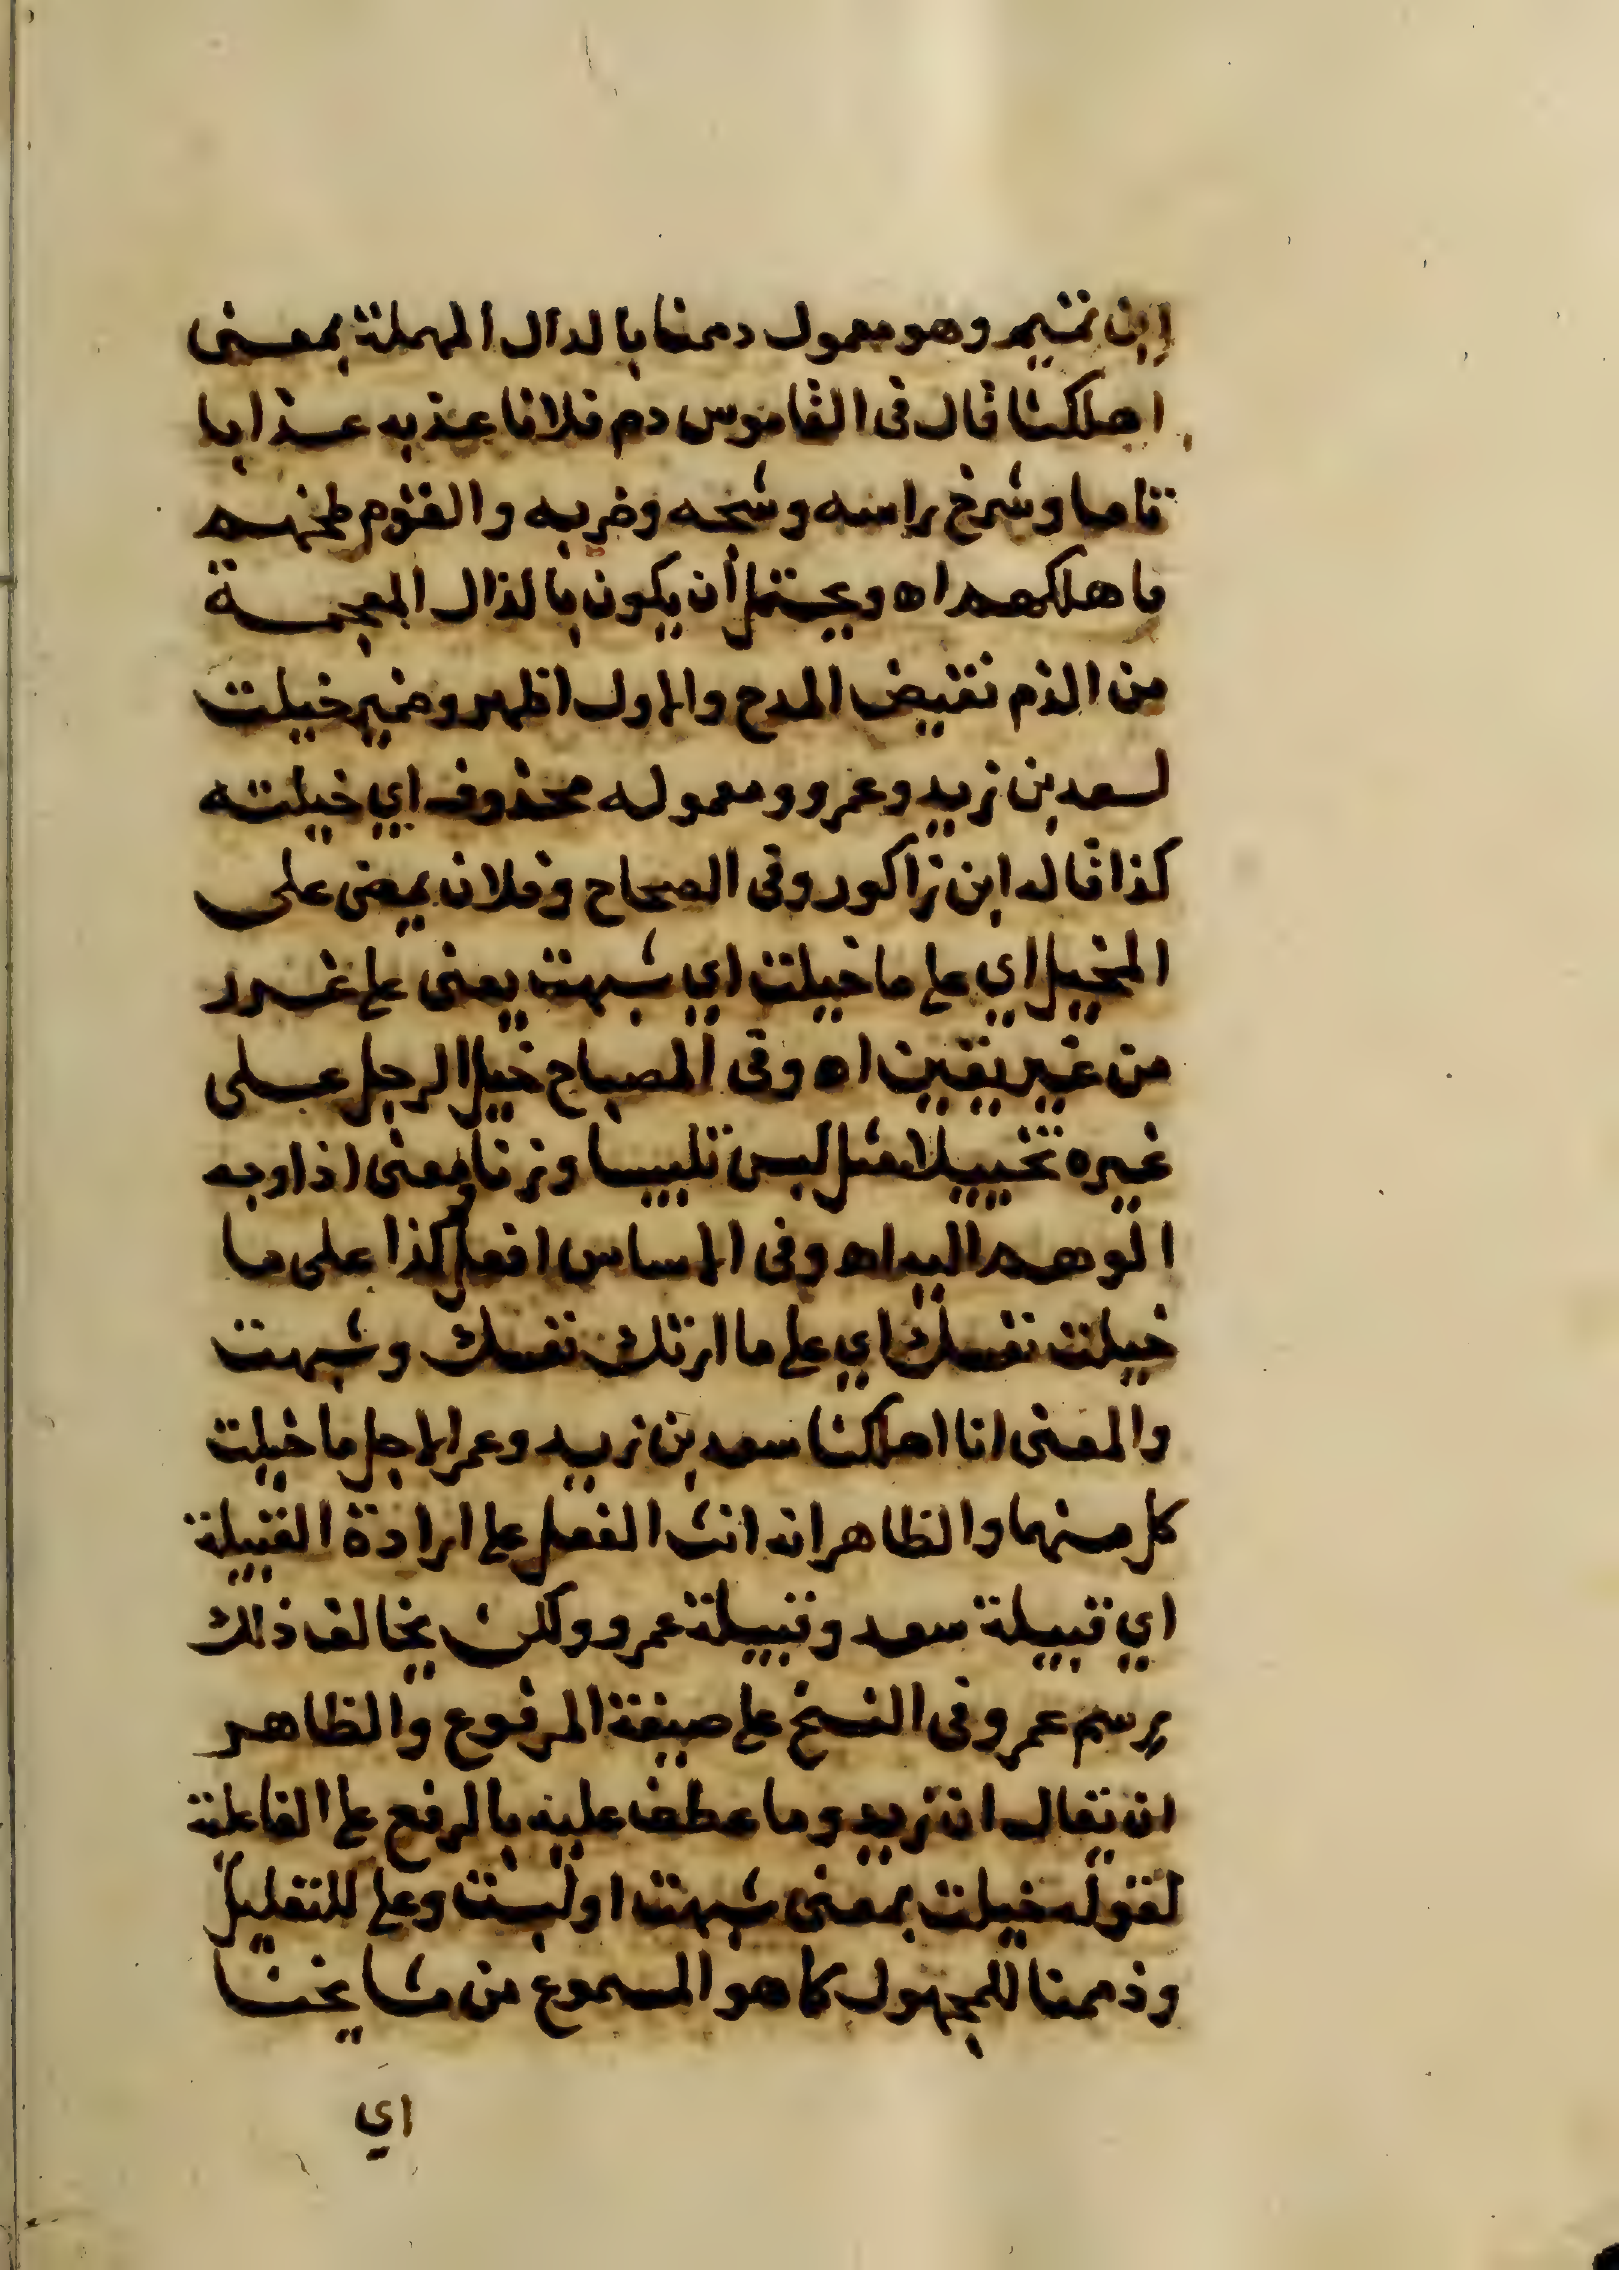 ابن تميم وهو معمول دممنا بالدال المهملة بمعنى
اهلكنا قال فى القاموس دم فلانا عذبه عذابا
تاما وشدخ راسه وشجه وضربه والقوم طحنهم
فاهلكهم اه ويحتمل أن يكون بالذال المعجمة
من الذم نقيض المدح والاول اظهر وضمير خيلت
لسعد بن زيد وعمرو ومعموله محذوف اي خيلته
كذا قاله ابن زاكور وفى الصحاح وفلان يمضى على
المخيل اي على ما خيلت اي شبهت يعنى على غرر
من غير يقين اه وفى المصباح خيل الرجل على
غيره تخييلا مثل لبس تلبيسا وزنا ومعنى اذا وجه
الوهم اليه اه وفى الاساس افعل كذا على ما
خيلت نفسك اي على ما ارتك نفسك وشبهت
والمعنى انا اهلكنا سعد بن زيد وعمرا لاجل ما خيلت
كل منهما والظاهر انه انث الفعل على ارادة القبيلة
اي قبيلة سعد وقبيلة عمرو ولكن يخالف ذلك
رسم عمرو فى النسخ على صيغة المرفوع والظاهر
ان يقال ان زيد وما عطف عليه بالرفع على الفاعلية
لقوله خيلت بمعنى شبهت او لبست وعلى للتعليل
وذممنا للمجهول كما هو المسموع من مشايخنا
اي